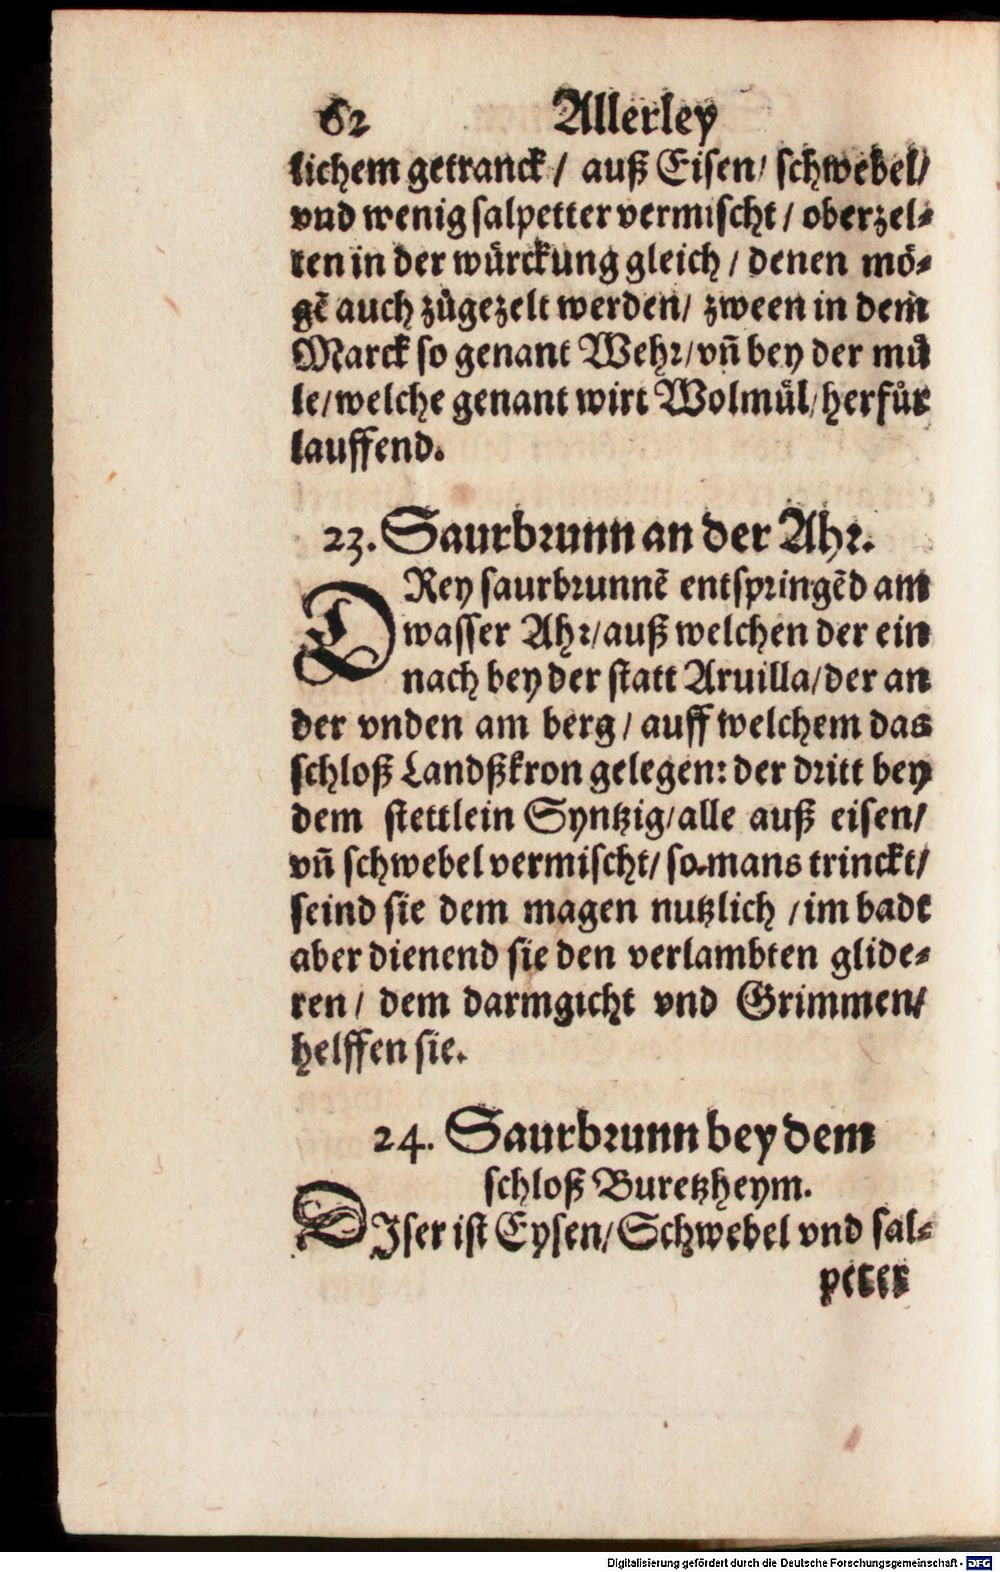 62 Allerley
lichem getranck / auß Eisen / schwebel /
vnd wenig salpetter vermischt / oberzel⸗
ten in der wuͤrckung gleich / denen moͤ⸗
gē auch zuͦgezelt werden / zween in dem
Marck so genant Wehr / vñ bey der muͤ
le / welche genant wirt Wolmuͤl / herfuͤr
lauffend.
23. Saurbrunn an der Ahr.
DRey saurbrunnē entspringēd am
wasser Ahr / auß welchen der ein
nach bey der statt Aruilla / der an
der vnden am berg / auff welchem das
schloß Landßkron gelegen: der dritt bey
dem stettlein Syntzig / alle auß eisen /
vñ schwebel vermischt / so mans trinckt /
seind sie dem magen nutzlich / im badt
aber dienend sie den verlambten glide⸗
ren / dem darmgicht vnd Grimmen /
helffen sie.
24. Saurbrunn bey dem
schloß Buretzheym.
DIser ist Eysen / Schwebel vnd sal⸗
peter
Digitalisierung gefördert durch die Deutsche Forschungsgemeinschaft - DFG